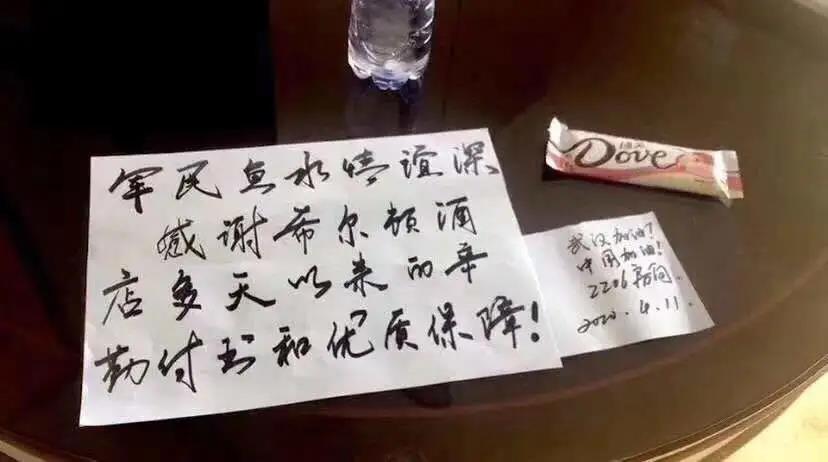 军民鱼水情谊深
感谢希尔顿酒
店多天以来的辛
勤付出和优质保障!
德芙
Dove
武汉加油!
中国加油!
2206房间.
2020.4.11.